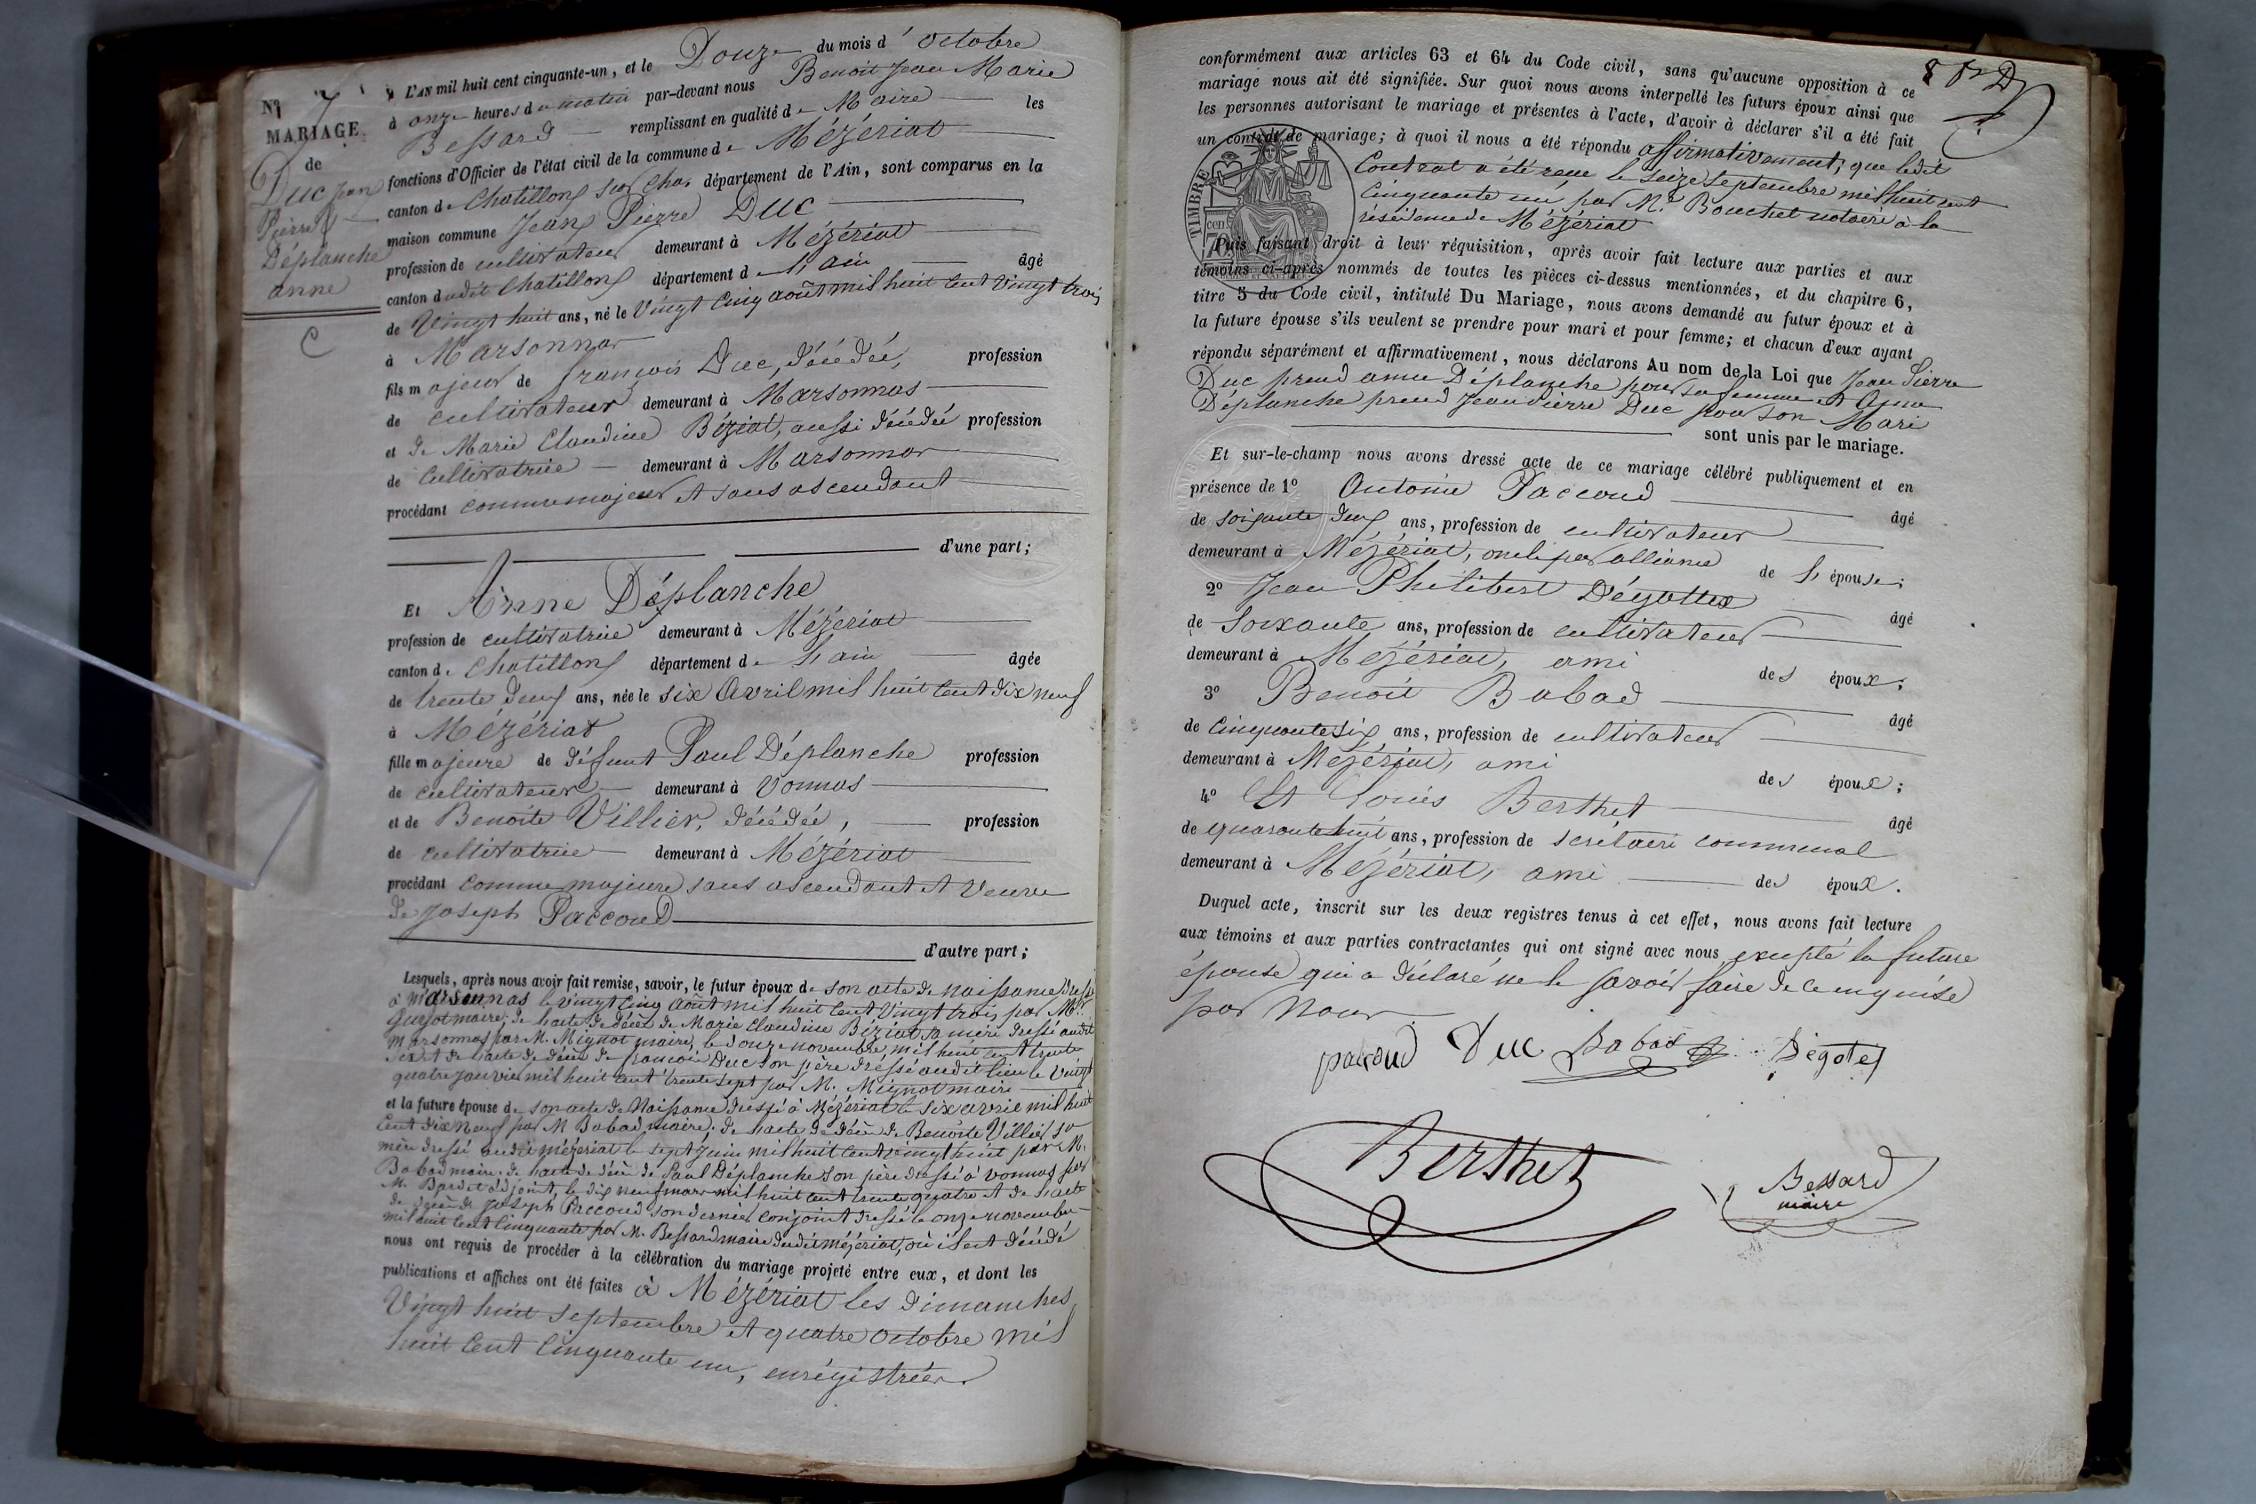 Nº 7
MARIAGE
de
Duc Jean
Pierre &
Déplanche
anne
C
L'AN mil huit cent cinquante-un, et le Douze du mois d'octobre
à onze heures du matin par-devant nous Benoit Jean Marie
Bessard remplissant en qualité de Maire les
fonctions d'Officier de l'état civil de la commune de Mézériat
canton de Chatillon sur Char. département de l'Ain, sont comparus en la
maison commune Jean Pierre Duc
profession de cultivateur demeurant à Mézériat
canton dudit Chatillon département de l'ain âgé
de Vingt huit ans, né le Vingt cinq août mil huit cent vingt trois
à Marsonnas
fils majeur de françois Duc, décédé, profession
de cultivateur demeurant à Marsonnas
et de Marie Claudine Béziat, aussi décédée profession
de Cultivatrice demeurant à Marsonnas
procédant comme majeur et sans ascendant
d'une part;
Et Anne Déplanche
profession de cultivatrice demeurant à Mézériat
canton de Chatillon département de l'ain âgée
de trente deux ans, née le six avril mil huit cent dix neuf
à Mézériat
fille majeure de défunt Paul Déplanche profession
de cultivateur demeurant à Vonnas
et de Benoite Villier, décédée, profession
de cultivatrice demeurant à Mézériat
procédant comme majeure sans ascendant et veuve
de Joseph Paccoud
d'autre part;
Lesquels, après nous avoir fait remise, savoir, le futur époux de son acte de naissance dressé
à Marsonnas le vingt cinq août mil huit cent vingt trois par Mr
Guyot maire; de l'acte de décès de Marie Claudine Béziat sa mère dressé audit
Marsonnas par M. Mignot maire, le douze novembre mil huit cent trente
et de l'acte de décès de françois Duc son père dressé audit lieu le vingt
quatre janvier mil huit cent trente sept par M. Mignot maire
et la future épouse de son acte de Naissance dressé à Mézériat le six avril mil huit
cent dix neuf par M Babad maire; de l'acte de décès de Benoite Villier sa
mère dressé audit mézériat le sept juin mil huit cent vingt huit par M.
Babad maire. de l'acte de décès de Paul Déplanche son père dressé à Vonnas par
M. Bardet adjoint, le dix neuf mars mil huit cent trente quatre et de l'acte
de décès de Joseph Paccoud son dernier conjoint dressé le onze novembre
mil huit cent cinquante par M. Bessard maire dudit mézériat, où il est décédé
nous ont requis de procéder à la célébration du mariage projeté entre eux, et dont les
publications et affiches ont été faites à Mézériat les dimanches
Vingt huit septembre et quatre octobre mil
huit cent cinquante un, enrégistrées.
conformément aux articles 63 et 64 du Code civil, sans qu'aucune opposition à ce
mariage nous ait été signifiée. Sur quoi nous avons interpellé les futurs époux ainsi que
les personnes autorisant le mariage et présentes à l'acte, d'avoir à déclarer s'il a été fait
un contrat de mariage; à quoi il nous a été répondu affirmativement, que ledit
Contrat a été reçu le seize septembre mil huit cent
cinquante un, par Me Bouchet notaire à la
résidence de Mézériat
TIMBRE
70 cen.
Puis faisant droit à leur réquisition, après avoir fait lecture aux parties et aux
témoins ci-après nommés de toutes les pièces ci-dessus mentionnées, et du chapitre 6,
titre 5 du Code civil, intitulé Du Mariage, nous avons demandé au futur époux et à
la future épouse s'ils veulent se prendre pour mari et pour femme; et chacun d'eux ayant
répondu séparément et affirmativement, nous déclarons Au nom de la Loi que Jean Pierre
Duc prend anne Déplanche pour sa femme et Anne
Déplanche prend Jean Pierre Duc pour son Mari
sont unis par le mariage.
Et sur-le-champ nous avons dressé acte de ce mariage célébré publiquement et en
présence de 1º Antoine Paccoud âgé
de soixante deux ans, profession de cultivateur
demeurant à Mézériat, oncle par alliance de l'épouse;
2º Jean Philibert Dégottex âgé
de Soixante ans, profession de cultivateur
demeurant à Mézériat, ami des époux;
3º Benoit Babad âgé
de cinquante six ans, profession de cultivateur
demeurant à Mézériat, ami des époux;
4º Et Louis Berthet âgé
de quarante huit ans, profession de secrétaire communal
demeurant à Mézériat, ami des époux.
Duquel acte, inscrit sur les deux registres tenus à cet effet, nous avons fait lecture
aux témoins et aux parties contractantes qui ont signé avec nous excepté la future
épouse qui a déclaré ne le savoir faire de ce enquise
par Nous
paccoud Duc Babad Dégotex
Berthet
Bessard
maire